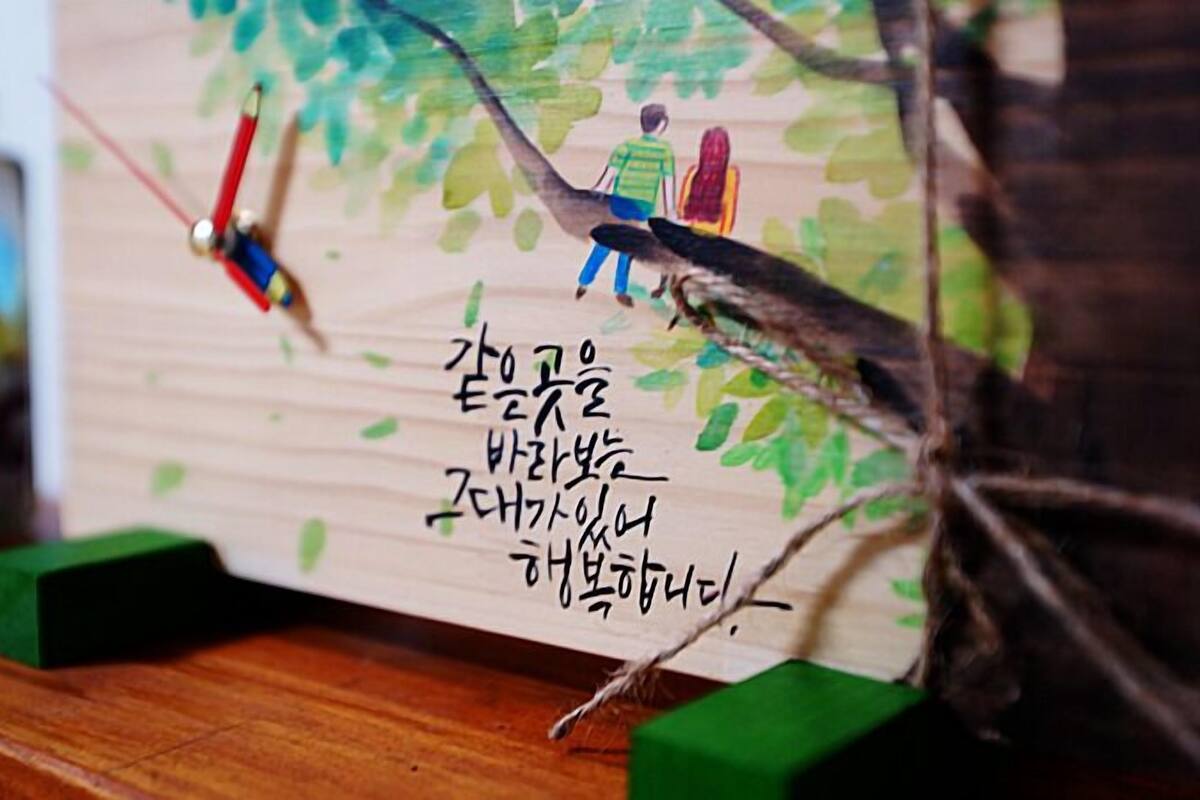 같은 곳을
바라보는
그대가 있어
행복합니다.